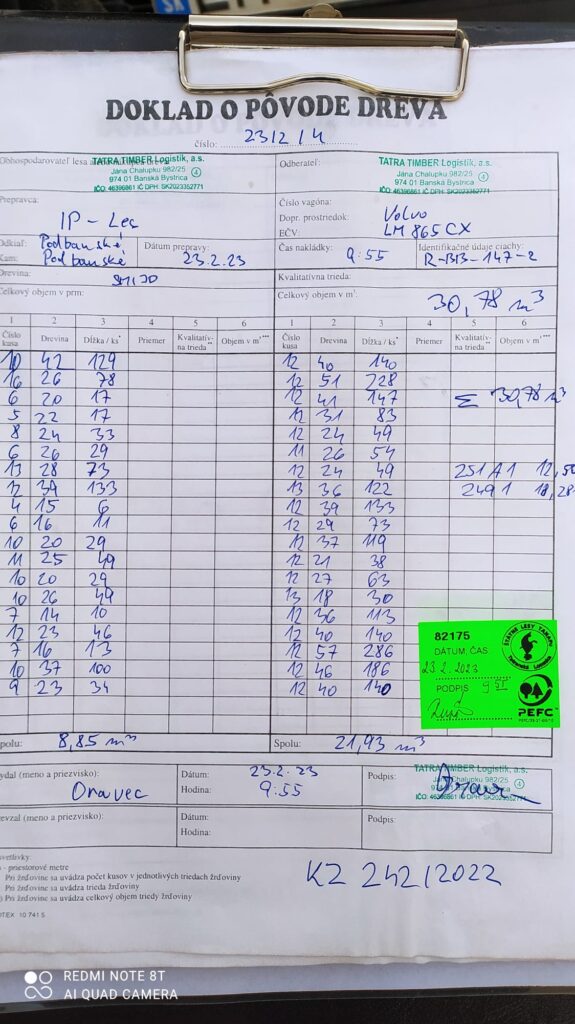 SK
DOKLAD O PÔVODE DREVA
číslo: 2312/4
Obhospodarovateľ lesa
TATRA TIMBER Logistik, a.s.
Jána Chalupku 982/25
974 01 Banská Bystrica
IČO: 46396861 IČ DPH: SK2023352771
4
Odberateľ:
TATRA TIMBER Logistik, a.s.
Jána Chalupku 982/25
974 01 Banská Bystrica
IČO: 46396861 IČ DPH: SK2023352771
4
Prepravca:
IP - Les
Číslo vagóna:
Dopr. prostriedok: Volvo
EČV: LM 865 CX
Odkiaľ: Podbanské
Kam: Podbanské
Dátum prepravy:
23.2.23
Čas nakládky:
9:55
Identifikačné údaje ciachy:
R-BB-147-2
Drevina:
Kvalitatívna trieda:
Celkový objem v prm:
Celkový objem v m³:
30,78 m³
1 2 3 4 5 6 1 2 3 4 5 6
Číslo kusa Drevina Dĺžka / ks* Priemer Kvalitatív-na trieda** Objem v m*** Číslo kusa Drevina Dĺžka / ks* Priemer Kvalitatív-na trieda** Objem v m***
10 42 129 12 40 140
16 26 78 12 51 228
6 20 17 12 41 147 Σ 30,78 m³
5 22 17 12 31 83
8 24 33 12 24 49
6 26 29 11 26 54
13 28 73 12 24 49 251 A1 12,50
12 39 133 13 36 122 249 1 18,28
4 15 6 12 39 133
6 16 11 12 29 73
10 20 29 12 37 119
11 25 49 12 21 38
10 20 29 12 27 63
10 26 49 13 18 30
7 14 10 12 36 113
12 23 46 12 40 140
7 16 13 12 57 286
10 37 100 12 46 186
9 23 34 12 40 140
82175
DÁTUM, ČAS
23.2.2023
PODPIS 9 55
ŠTÁTNE LESY TANAPU
TATRANSKÁ LOMNICA
PEFC
Spolu: 8,85 m³
Spolu: 21,93 m³
Vydal (meno a priezvisko):
Oravec
Dátum: 23.2.23
Hodina: 9:55
Podpis:
TATRA TIMBER Logistik, a.s.
Jána Chalupku 982/25
974 01 Banská Bystrica
IČO: 46396861 IČ DPH: SK2023352771
Prevzal (meno a priezvisko):
Dátum:
Hodina:
Podpis:
Vysvetlivky:
- priestorové metre
Pri žrďovine sa uvádza počet kusov v jednotlivých triedach žrďoviny
Pri žrďovine sa uvádza trieda žrďoviny
Pri žrďovine sa uvádza celkový objem triedy žrďoviny
10 741 5
KZ 242/2022
REDMI NOTE 8T
AI QUAD CAMERA